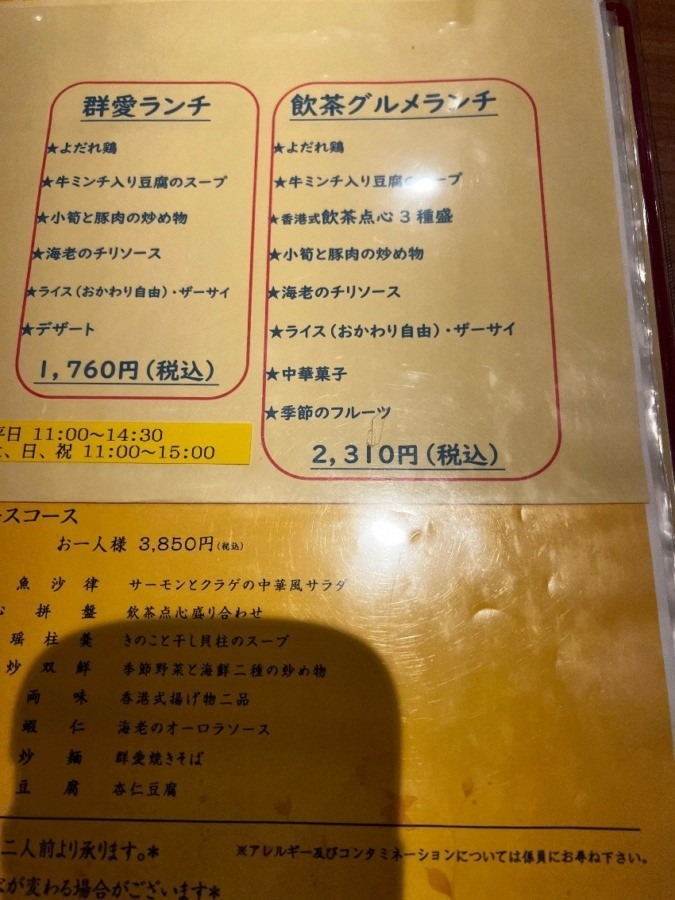 群愛ランチ
★よだれ鶏
★牛ミンチ入り豆腐のスープ
★小筍と豚肉の炒め物
★海老のチリソース
★ライス（おかわり自由）・ザーサイ
★デザート
1,760円（税込）
飲茶グルメランチ
★よだれ鶏
★牛ミンチ入り豆腐のスープ
★香港式飲茶点心3種盛
★小筍と豚肉の炒め物
★海老のチリソース
★ライス（おかわり自由）・ザーサイ
★中華菓子
★季節のフルーツ
2,310円（税込）
平日 11:00～14:30
、日、祝 11:00～15:00
スコース
お一人様 3,850円(税込)
魚沙律 サーモンとクラゲの中華風サラダ
拼盤 飲茶点心盛り合わせ
瑶柱羹 きのこと干し貝柱のスープ
炒双鮮 季節野菜と海鮮二種の炒め物
両味 香港式揚げ物二品
蝦仁 海老のオーロラソース
炒麺 群愛焼きそば
豆腐 杏仁豆腐
二人前より承ります。*
※アレルギー及びコンタミネーションについては係員にお尋ね下さい。
が変わる場合がございます*